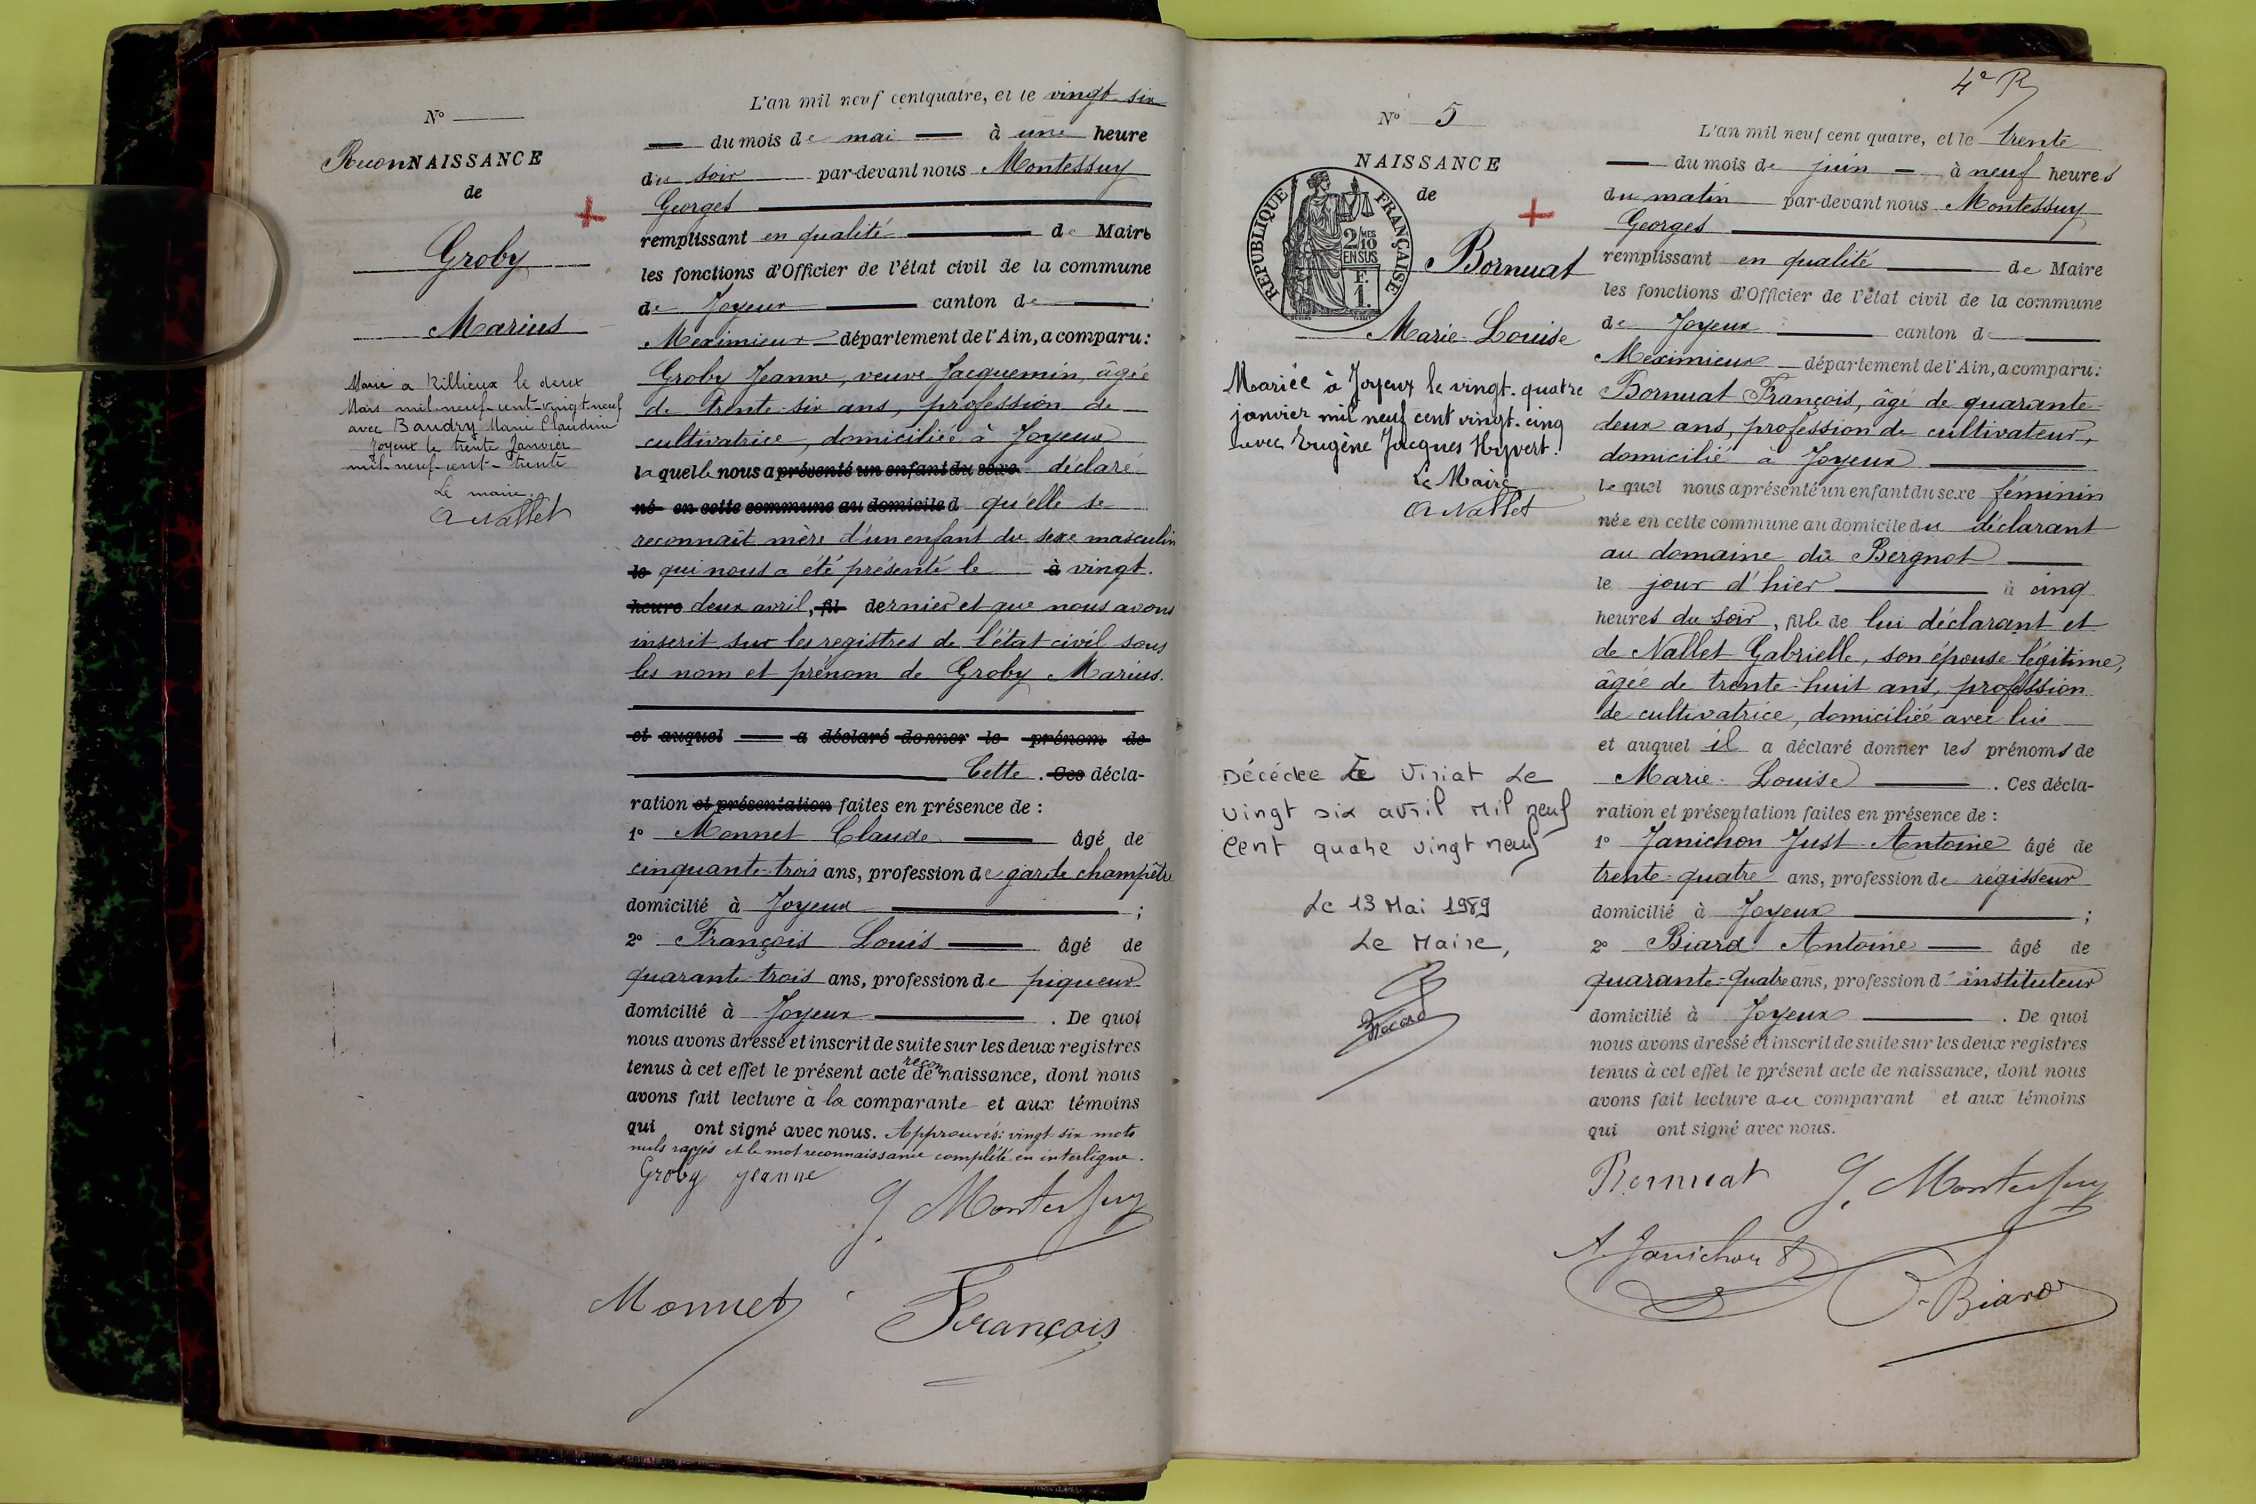 N°
ReconNAISSANCE
de
Groby
Marius
Marié à Rillieux le deux
Mars mil-neuf-cent-vingt-neuf
avec Baudry Marie Claudine
Joyeux le trente Janvier
mil-neuf-cent-trente
Le maire.
A Nallet
L'an mil neuf cent quatre, et le vingt-six
du mois de mai à une heure
du soir par-devant nous Montessuy
Georges
remplissant en qualité de Maire
les fonctions d'Officier de l'état civil de la commune
de Joyeux canton de
Meximieux département de l'Ain, a comparu :
Groby Jeanne, veuve Jacquemin, âgée
de trente-six ans, profession de
cultivatrice, domiciliée à Joyeux
laquelle nous a présenté un enfant du sexe déclaré
né en cette commune au domicile d qu'elle se
reconnaît mère d'un enfant du sexe masculin
le qui nous a été présenté le à vingt-
heure deux avril, fil dernier et que nous avons
inscrit sur les registres de l'état civil sous
les nom et prénom de Groby Marius.
et auquel a déclaré donner le prénom de
Cette. Ces décla-
ration et présentation faites en présence de :
1° Monnet Claude âgé de
cinquante-trois ans, profession de garde champêtre
domicilié à Joyeux ;
2° François Louis âgé de
quarante-trois ans, profession de piqueur
domicilié à Joyeux . De quoi
nous avons dressé et inscrit de suite sur les deux registres
recon
tenus à cet effet le présent acte de naissance, dont nous
avons fait lecture à la comparante et aux témoins
qui ont signé avec nous. Approuvés : vingt-six mots
nuls rayés et le mot reconnaissance complété en interligne.
Groby Jeanne
G. Montessuy
Monnet
François
4e R
N° 5
NAISSANCE
de
RÉPUBLIQUE FRANÇAISE
2/10 MES
EN SUS
F.
1.
Bornuat
Marie-Louise
Mariée à Joyeux le vingt-quatre
janvier mil neuf cent vingt-cinq
avec Eugène Jacques Hyvert.
Le Maire
A Nallet
Décédée Le Viriat Le
vingt six avril mil neuf
cent quatre vingt neuf
Le 13 Mai 1989
Le Maire,
L'an mil neuf cent quatre, et le trente
du mois de juin à neuf heures
du matin par-devant nous Montessuy
Georges
remplissant en qualité de Maire
les fonctions d'Officier de l'état civil de la commune
de Joyeux canton de
Meximieux département de l'Ain, a comparu :
Bornuat François, âgé de quarante-
deux ans, profession de cultivateur,
domicilié à Joyeux
lequel nous a présenté un enfant du sexe féminin
née en cette commune au domicile du déclarant
au domaine du Bergnot
le jour d'hier à cinq
heures du soir, fille de lui déclarant et
de Nallet Gabrielle, son épouse légitime,
âgée de trente-huit ans, profession
de cultivatrice, domiciliée avec lui
et auquel il a déclaré donner les prénoms de
Marie-Louise . Ces décla-
ration et présentation faites en présence de :
1° Janichon Just Antoine âgé de
trente-quatre ans, profession de régisseur
domicilié à Joyeux ;
2° Biard Antoine âgé de
quarante-quatre ans, profession d'instituteur
domicilié à Joyeux . De quoi
nous avons dressé et inscrit de suite sur les deux registres
tenus à cet effet le présent acte de naissance, dont nous
avons fait lecture au comparant et aux témoins
qui ont signé avec nous.
Bornuat
G. Montessuy
A. Janichon
Biard